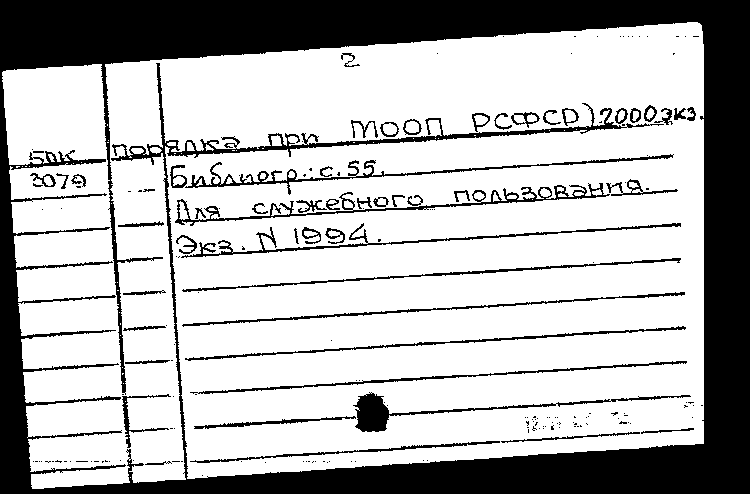 2
порядка при МООП РСФСР) 2000 экз.
БДК
3079
Библиогр.: с. 55.
Для служебного пользования.
Экз. N 1994.